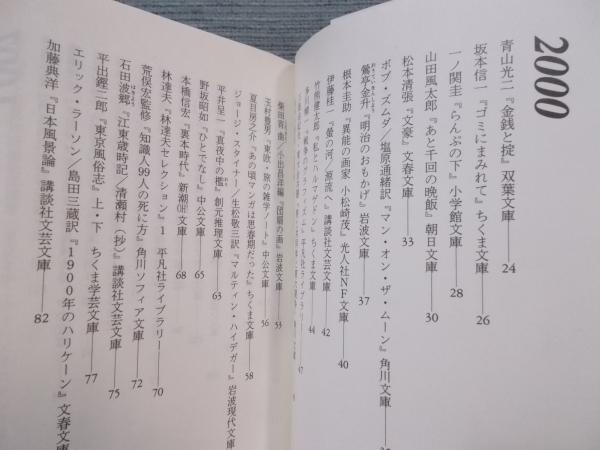 2000
青山光二『金銭と掟』双葉文庫──24
坂本信一『ゴミにまみれて』ちくま文庫──26
一ノ関圭『らんぷの下』小学館文庫──28
山田風太郎『あと千回の晩飯』朝日文庫──30
松本清張『文豪』文春文庫──33
ボブ・ズムダ／塩原通緒訳『マン・オン・ザ・ムーン』角川文庫──
鶯亭金升『明治のおもかげ』岩波文庫──37
根本圭助『異能の画家 小松崎茂』光人社NF文庫──40
伊藤桂一『螢の河／源流へ』講談社文芸文庫──42
竹熊健太郎『私とハルマゲドン』ちくま文庫──44
平凡社ライブラリー──47
柴田宵曲／小出昌洋編『団扇の画』岩波文庫──53
玉村豊男『東欧・旅の雑学ノート』中公文庫──56
夏目房之介『あの頃マンガは思春期だった』ちくま文庫──58
ジョージ・スタイナー／生松敬三訳『マルティン・ハイデガー』岩波現代文庫
平井呈一『真夜中の檻』創元推理文庫──63
野坂昭如『ひとでなし』中公文庫──65
本橋信宏『裏本時代』新潮OH!文庫──68
林達夫『林達夫セレクション』1 平凡社ライブラリー──70
荒俣宏監修『知識人99人の死に方』角川ソフィア文庫──72
石田波郷『江東歳時記／清瀬村（抄）』講談社文芸文庫──75
平出鏗二郎『東京風俗志』上・下 ちくま学芸文庫──77
エリック・ラーソン／島田三蔵訳『1900年のハリケーン』文春文庫
加藤典洋『日本風景論』講談社文芸文庫──82